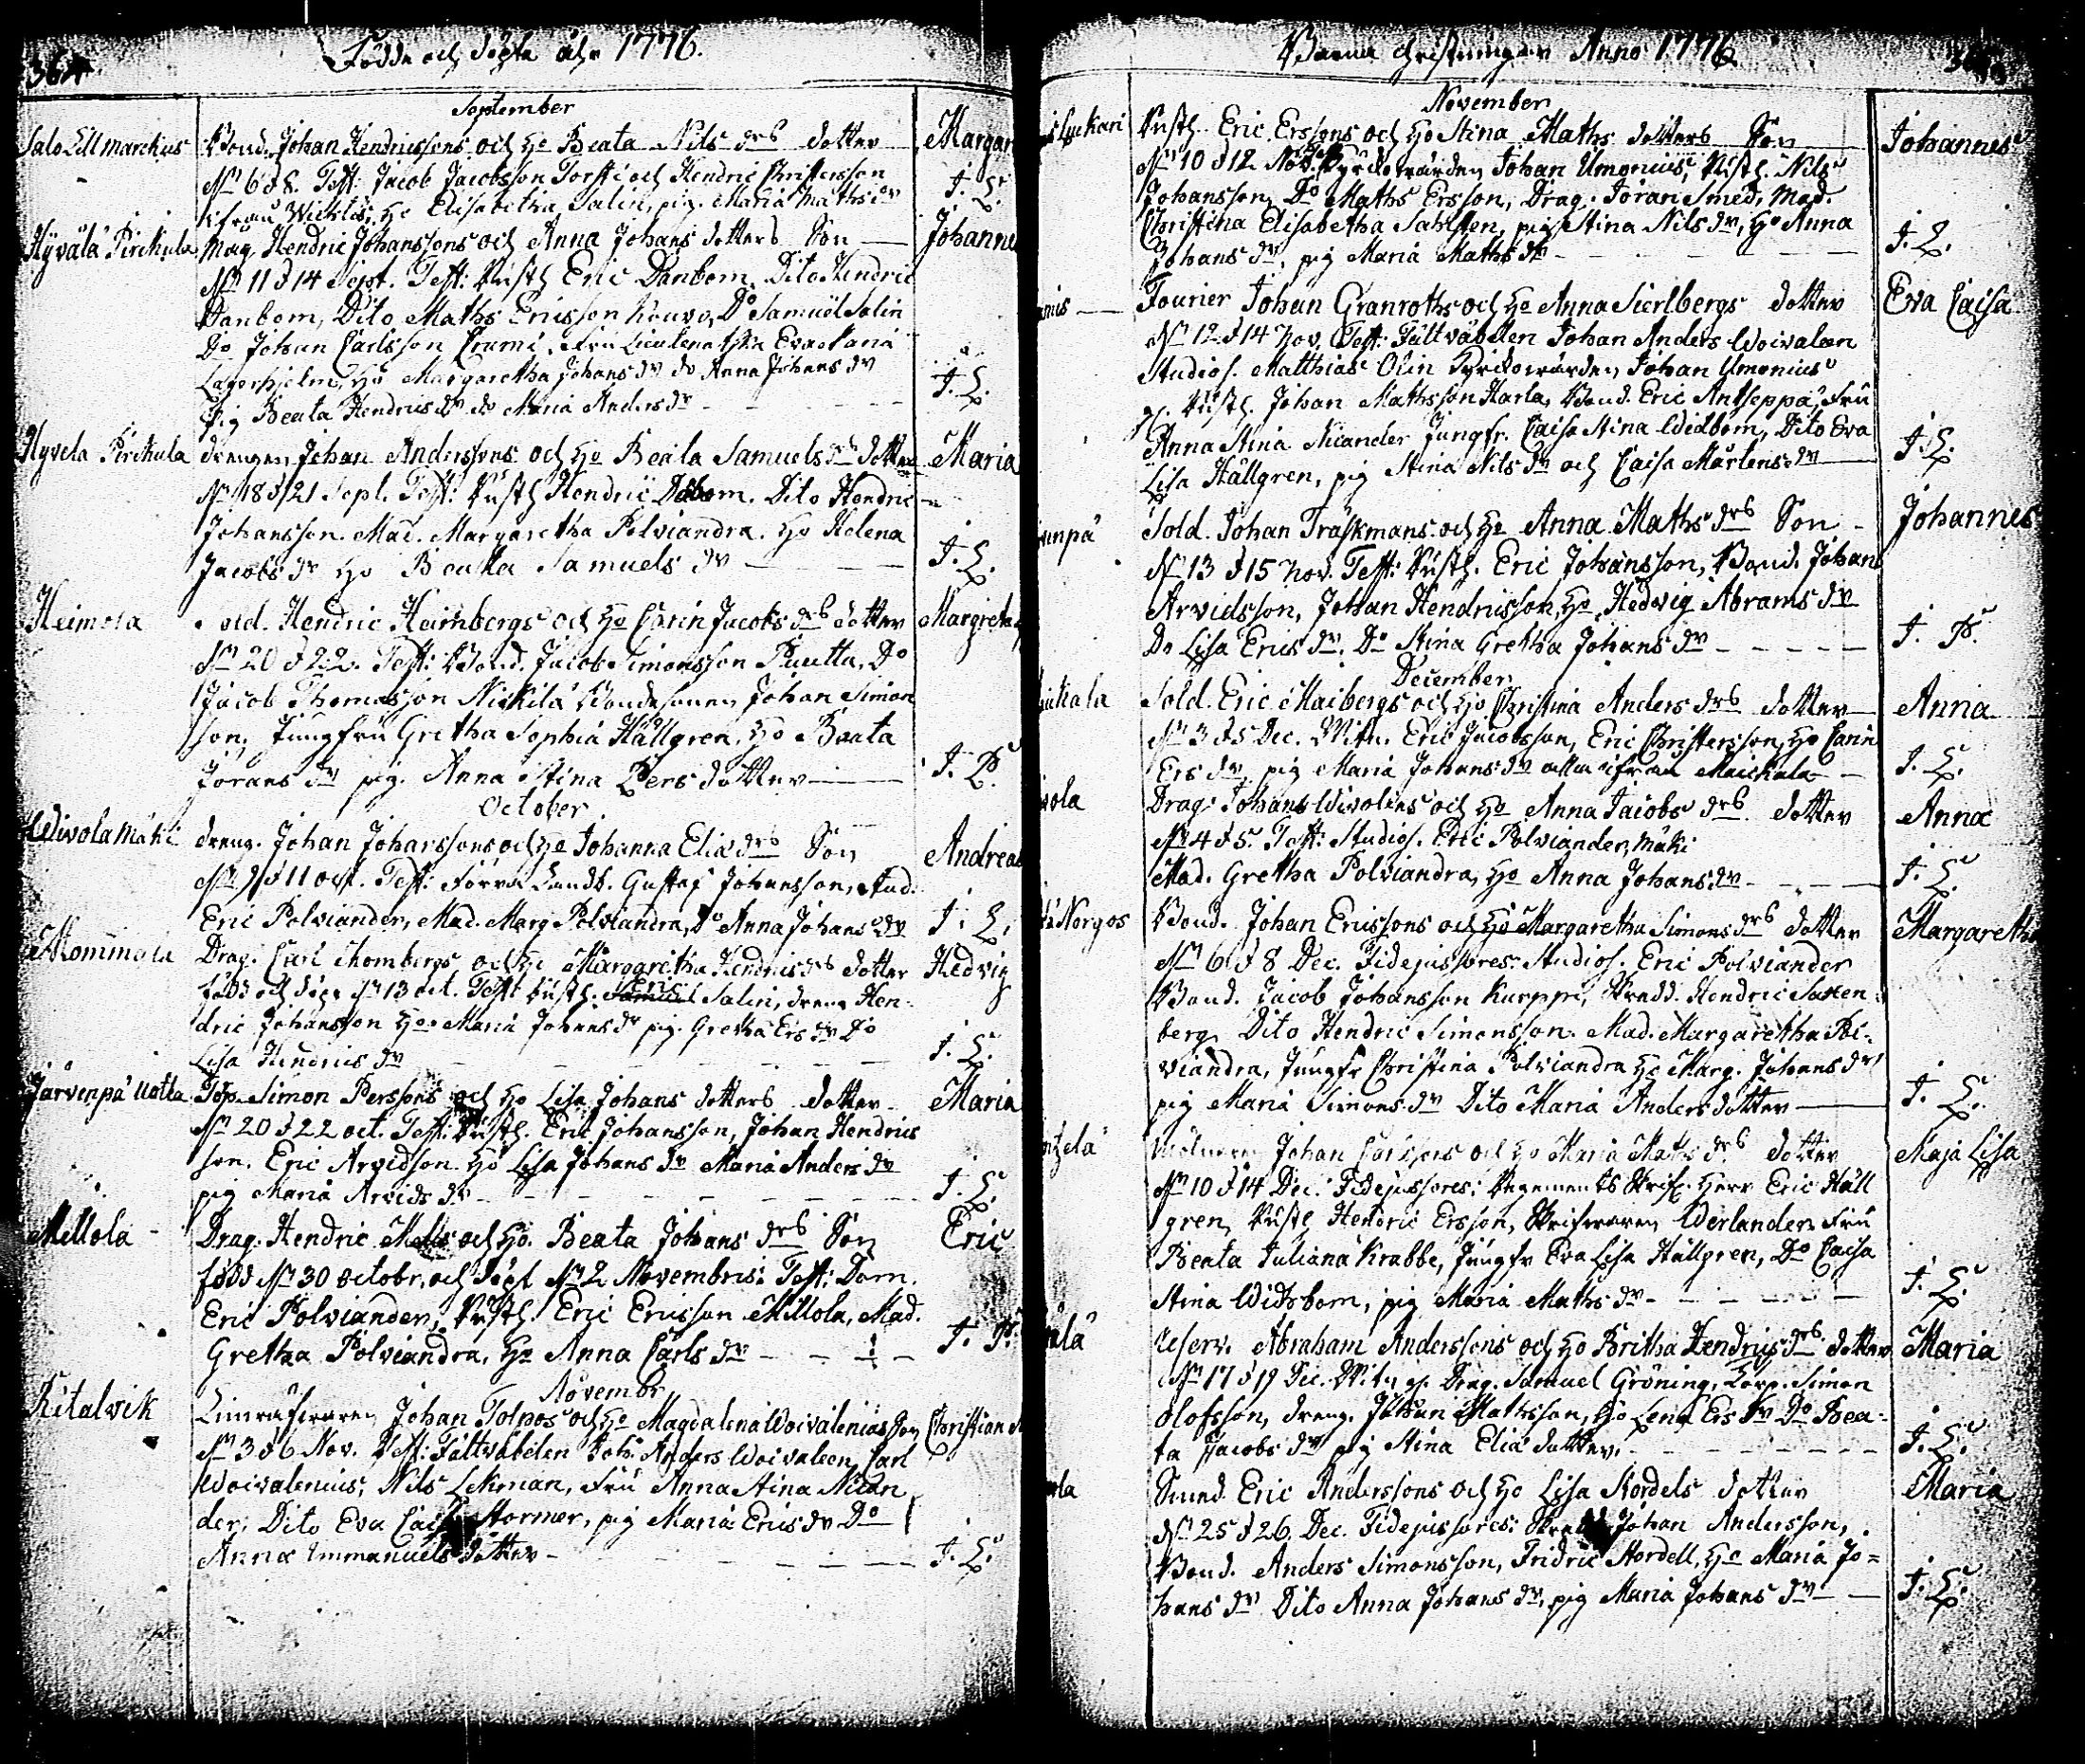 364.
Födde och döpte åhr 1776.
September
Salo Lill marckus Bond. Johan Hendricssons och Ho Beata Nils drs dotter Margar
Nr 6 d 8. Test: Jacob Jacobsson Torsti och Hendric Christersson
ifrån Wichtis, Ho Elisabetha Salin, pig. Maria Maths dr J. L.
Hyvälä Pirckula Måg Hendric Johanssons och Anna Johans dotters Son Johanne
Nr 11 d 14 Sept. Test: Rusth Eric Danbom, Dito Hendric
Danbom, Dito Maths Ericsson Kouvo, Do Samuel Salin
Do Johan Carlsson Crumi, Fru Lieutenatskn Eva Maria
Lagerhjelm, Ho Margaretha Johans dr do Anna Johans dr
Pig Beata Hendrics dr do Maria Anders dr J. L.
Hyvela Pirckula drengen Johan Anderssons och Ho Beata Samuels drs dotter Maria
Nr 18 d 21 Sept. Test: Rusth Hendric Dabom. Dito Hendric
Johansson. Mad. Margaretha Polviandra. Ho Helena
Jacobs dr Ho Beata Samuels dr J. L.
Heimola Sold. Hendric Heimbergs och Ho Carin Jacobs drs dotter Margreta
Nr 20 d 22. Test: Bond. Jacob Simonsson Puutta, Do
Jacob Thomasson Nickilä Bondesonen Johan Simon
son, Jungfru Gretha Sophia Hällgren, Ho Beata
Jörans dr pig. Anna Stina Pers dotter J. P.
October
Wivola Mäki dreng. Johan Johanssons och Ho Johanna Eliæ drs Son Andreas
Nr 9 d 11 oct. Test: Förra Landb. Gustaf Johansson, Stud.
Eric Polviander, Mad. Marg Polviandra, Do Anna Johans dr J. L.
Mommola Drag. Carl Mombergs och Ho Margaretha Hendrics drs dotter Hedvig
född och döpt Nr 13 oct. Test Rusth: Eric Salin, dreng Hen-
dric Johansson Ho Maria Johans dr pig. Gretha Ers dr Do
Lisa Hendrics dr J. L.
Järvenpä Uotla Torp. Simon Perssons och Ho Lisa Johans dotters dotter Maria
Nr 20 d 22 oct. Test: Rusth. Eric Johansson, Johan Hendrics
son. Eric Arvidson Ho Lisa Johans dr Maria Anders dr
pig Maria Arvids dr J. L.
Millola Drag. Hendric Melis och Ho. Beata Johans drs Son Eric
född Nr 30 Octobr. och döpt Nr 2 Novembris: Test: Dom.
Eric Polviander, Rusth. Eric Ericsson Millola, Mad.
Gretha Polviandra, Ho Anna Carls dr J. P.
Novembr
Ritalvik Johan Tolpos och Ho Magdalena Woivalenias Son Christian
Nr 3 d 6 Nov. Test: Fältväbelen Joh: Anders Woivaleen Carl
Woivalenius, Nils Lekman, Fru Anna Stina Nican
der, Dito Eva Caisa Stormer, pig Maria Erics dr Do
Anna Immanuels dotter J. L.
Barna Christningar Anno 1776
November
Luckari Rusth. Eric Erssons och Ho Stina Maths dotters Son Johannes
Nr 10 d 12 Nov. Kyrckovärden Johan Umonius, Rusth. Nils
Johansson, Do Maths Ersson, Drag. Jöran Smed, Mad.
Christina Elisabetha Sahlsten, pig Stina Nils dr, Ho Anna
Johans dr, pig Maria Maths dr J. L.
Fourier Johan Granroths och Ho Anna Sierlbergs dotter Eva Caisa
Nr 12 d 14 Nov. Test: Fältväbelen Johan Anders Woivaleen
Studios. Matthias Olin Kyrckovärden Johan Umonius
Rusth. Johan Mathsson Harla, Bond. Eric Antseppä, Fru
Anna Stina Nicander Jungfr. Caisa Stina Widbom, Dito Eva
Lisa Hällgren, pig Stina Nils dr och Caisa Mårtens dr J. L.
Sold. Johan Träskmans och Ho Anna Maths drs Son Johannes
Nr 13 d 15 Nov. Test: Rusth. Eric Johansson, Bond. Johan
Arvidsson, Johan Hendricsson, Ho Hedwig Abrams dr
Do Lisa Erics dr. Do Stina Gretha Johans dr J. P.
December
Sold. Eric Maibergs och Ho Christina Anders drs dotter Anna
Nr 3 d 5 Dec. Witn. Eric Jacobsson, Eric Christersson, Ho Carin
Ers dr, pig Maria Johans dr alla ifrån Maickala J. L.
Drag. Johans Wivolins och Ho Anna Jacobs drs dotter Anna
Nr 4 d 5. Test: Studios. Eric Polviander, Mäki
Mad. Gretha Polviandra, Ho Anna Johans dr J. L.
Norgos Bond. Johan Ericssons och Ho Margaretha Simons drs dotter Margaretha
Nr 6 d 8 Dec. Fidejussores: Studios. Eric Polviander
Bond. Jacob Johansson Kurppi, Skredd. Hendric Saxen-
berg, Dito Hendric Simonsson. Mad. Margaretha Pol-
viandra, Jungfr Christina Polviandra Ho Marg. Johans dr
pig Maria Simons dr Dito Maria Anders dotter J. L.
Johan Carlssons och Ho Maria Maths drs dotter Maja Lisa
Nr 10 d 14 Dec. Fidejussores: Regements Skrif. Herr Eric Häll
gren, Rusth Hendric Ersson, Skrifwaren Werlander, Fru
Beata Juliana Krabbe, Jungfr Eva Lisa Hällgren, Do Caisa
Stina Widbom, pig Maria Maths dr J. L.
Reserv. Abraham Anderssons och Ho Britha Hendrics drs dotter Maria
Nr 17 d 19 Dec. Witn. Drag. Samuel Gröning, Corp. Simon
Olofsson, dreng. Johan Mathsson, Ho Lena Ers dr Do Bea-
ta Jacobs dr pig Stina Eliæ dotter. J. L.
Eric Anderssons och Ho Lisa Nordels dotter Maria
Nr 25 d 26 Dec. Fidejussores: Johan Andersson,
Bond. Anders Simonsson, Fridric Nordell, Ho Maria Jo=
hans dr Dito Anna Johans dr, pig Maria Johans dr J. L.